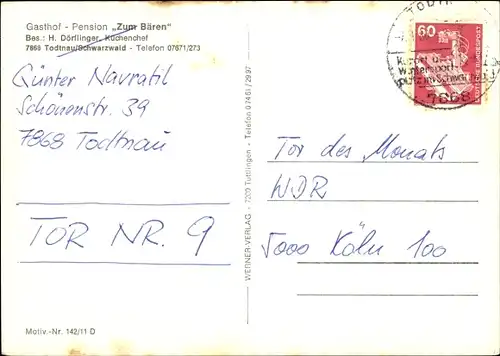 Gasthof - Pension „Zum Bären"
Bes.: H. Dörflinger, Küchenchef
7868 Todtnau/Schwarzwald - Telefon 07671/273
Günter Navratil
Schönenstr. 39
7868 Todtnau
TOR NR. 9
Motiv.-Nr. 142/11 D
WERNER-VERLAG - 7200 Tuttlingen - Telefon
60
BUNDESPOST
Kurort und
Wintersport
7868
Tor des Monats
WDR
5000 Köln 100